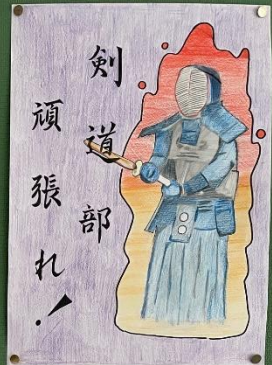 剣道部
頑張れ!